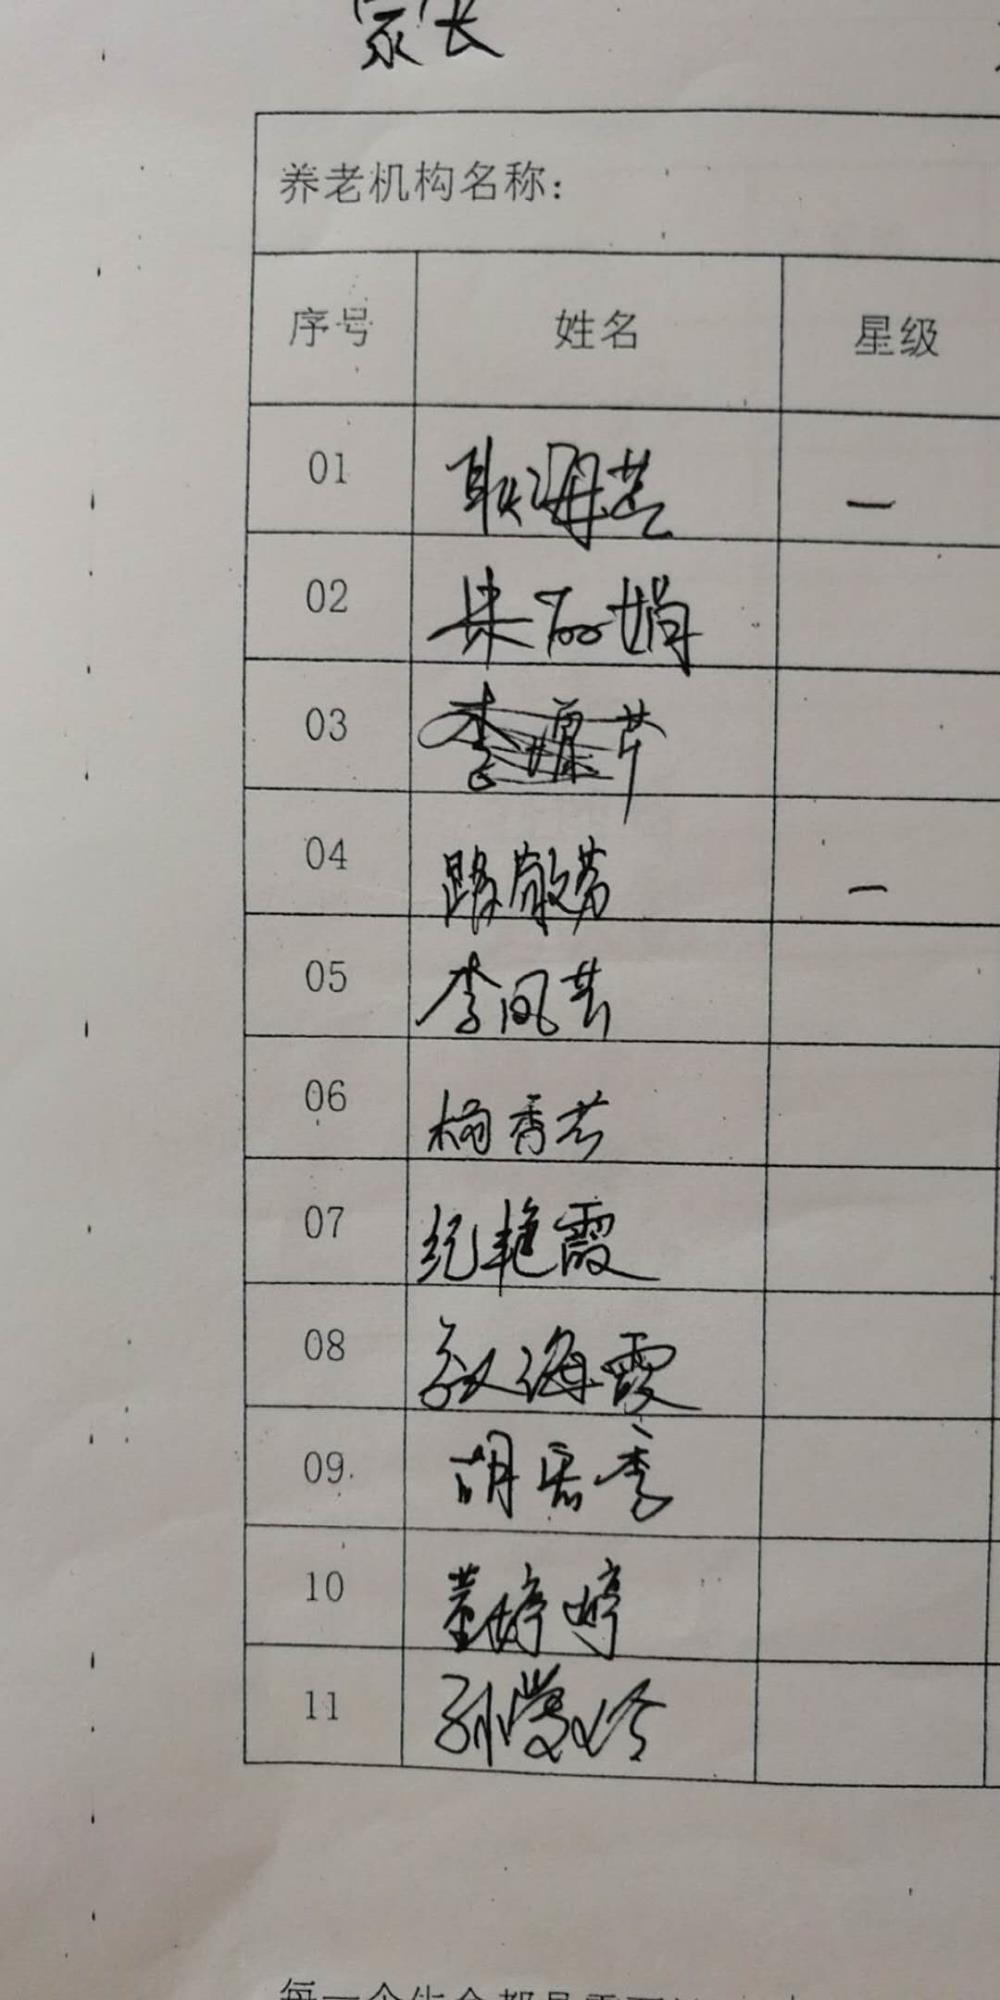 家长
养老机构名称：
序号 姓名 星级
01 耿海芸 一
02 朱丽娟
03
04 路敬芳 一
05 李凤芸
06 杨秀芸
07 纪艳霞
08 敬海霞
09 胡居季
10 董婷婷
11 孙爱玲